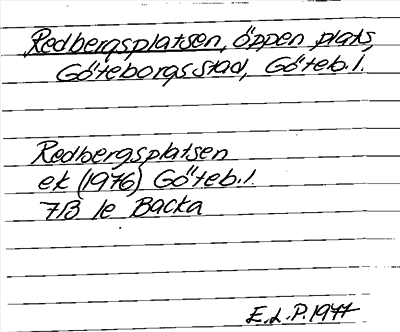 Redbergsplatsen, öppen plats,
Göteborgs stad, Göteb. l.
Redbergsplatsen
ek (1976) Göteb. l.
7B 1e Backa
E.L.P. 1977